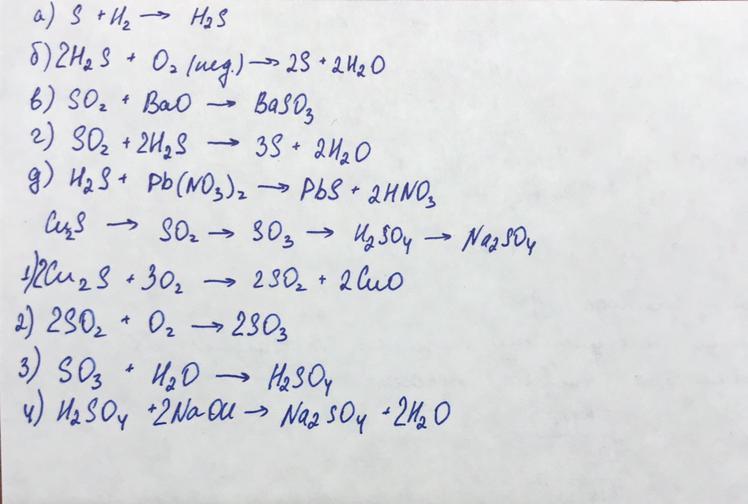 а) S + H₂ → H₂S
б) 2H₂S + O₂ (нед.) → 2S + 2H₂O
в) SO₂ + BaO → BaSO₃
г) SO₂ + 2H₂S → 3S + 2H₂O
д) H₂S + Pb(NO₃)₂ → PbS + 2HNO₃
Cu₂S → SO₂ → SO₃ → H₂SO₄ → Na₂SO₄
1) 2Cu₂S + 3O₂ → 2SO₂ + 2CuO
2) 2SO₂ + O₂ → 2SO₃
3) SO₃ + H₂O → H₂SO₄
4) H₂SO₄ + 2NaOH → Na₂SO₄ + 2H₂O